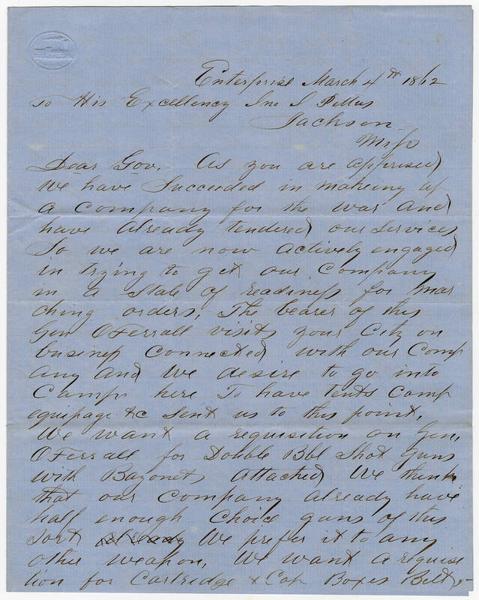 Enterprise March 4th 1862
To His Excellency Jno J Pettus
Jackson
Miss
Dear Gov. As you are apprised
We have Succeeded in makeing up
a Company for the war and
have already tendered our services
So we are now actively engaged
in trying to get our Company
in a State of readiness for mar
ching orders. The bearer of this
Gen O'Ferrall visits your City on
business Connected with our Comp
any and We desire to go into
Camps here To have tents Camp
equipage &c Sent us to this point.
We want a requisition on Gen.
O'Ferrall for Dobble Bbl Shot Guns
with Bayonets attached We think
that our Company already have
half enough Choice guns of this
Sort already We prefer it to any
other weapon. We want a requisi
tion for Cartredge & Cap Boxes Belts,